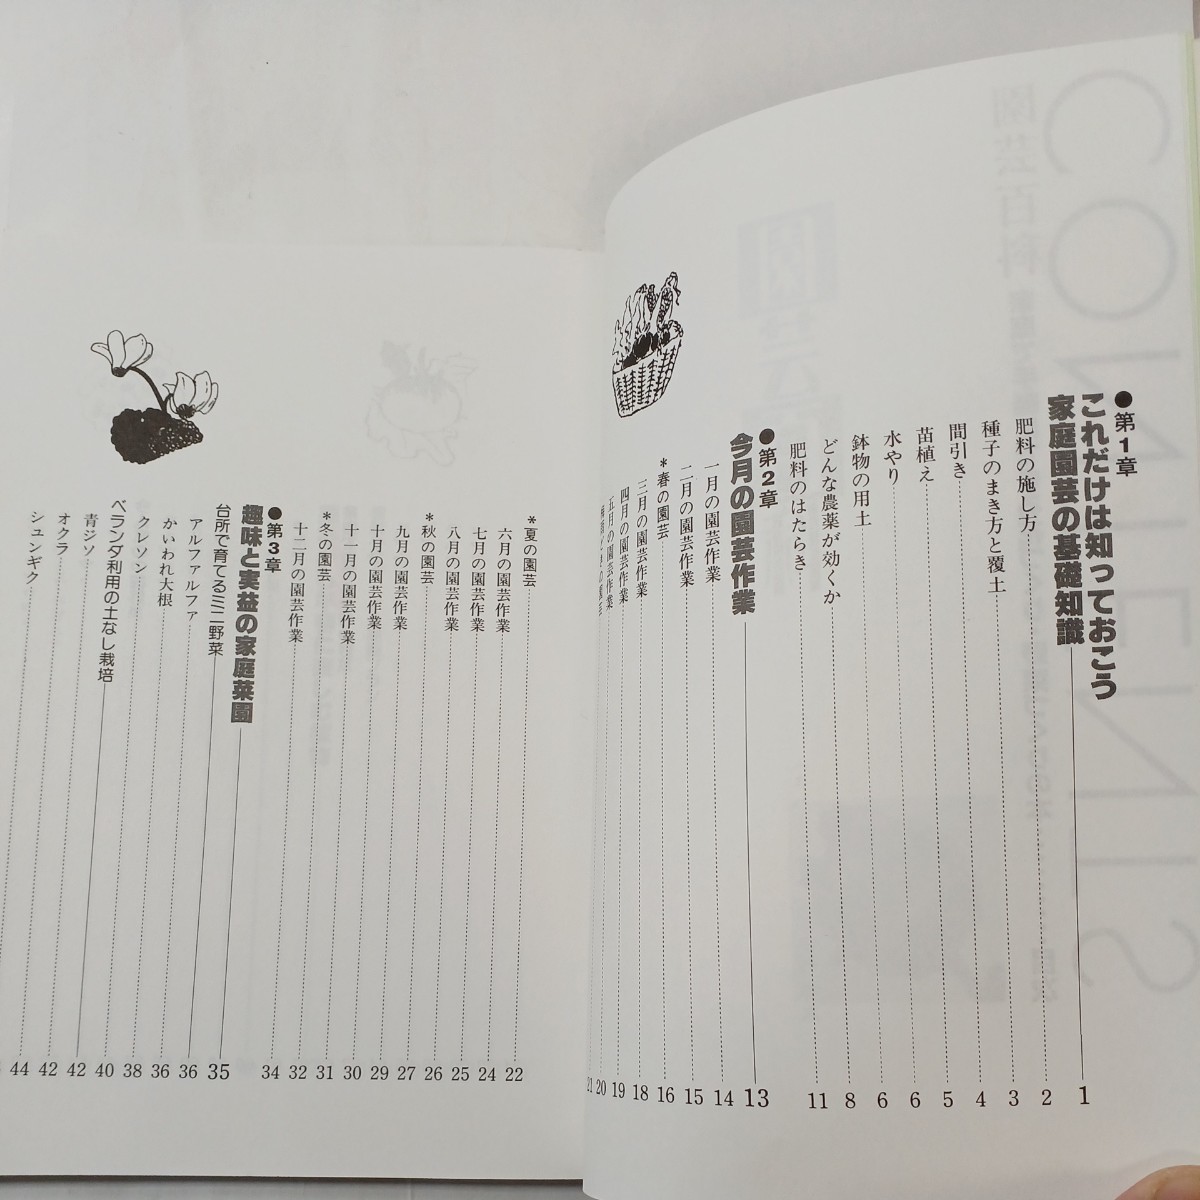 ●第1章
これだけは知っておこう
家庭園芸の基礎知識 1
肥料の施し方 2
種子のまき方と覆土 3
間引き 4
苗植え 5
水やり 6
鉢物の用土 6
どんな農薬が効くか 8
肥料のはたらき 11
●第2章
今月の園芸作業 13
一月の園芸作業 14
二月の園芸作業 15
*春の園芸 16
三月の園芸作業 18
四月の園芸作業 19
五月の園芸作業 20
21
*夏の園芸 22
六月の園芸作業 24
七月の園芸作業 25
八月の園芸作業 26
*秋の園芸 27
九月の園芸作業 29
十月の園芸作業 30
十一月の園芸作業 31
*冬の園芸 32
十二月の園芸作業 34
●第3章
趣味と実益の家庭菜園 35
台所で育てるミニ野菜 36
アルファルファ 36
かいわれ大根 38
クレソン 40
ベランダ利用の土なし栽培 42
青ジソ 42
オクラ 44
シュンギク